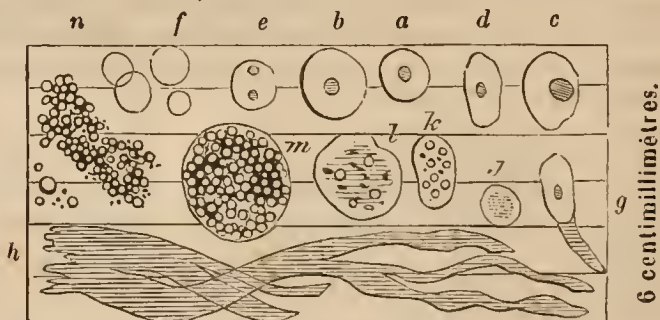 n f e b a d c
m l k j g
h
6 centimillimètres.